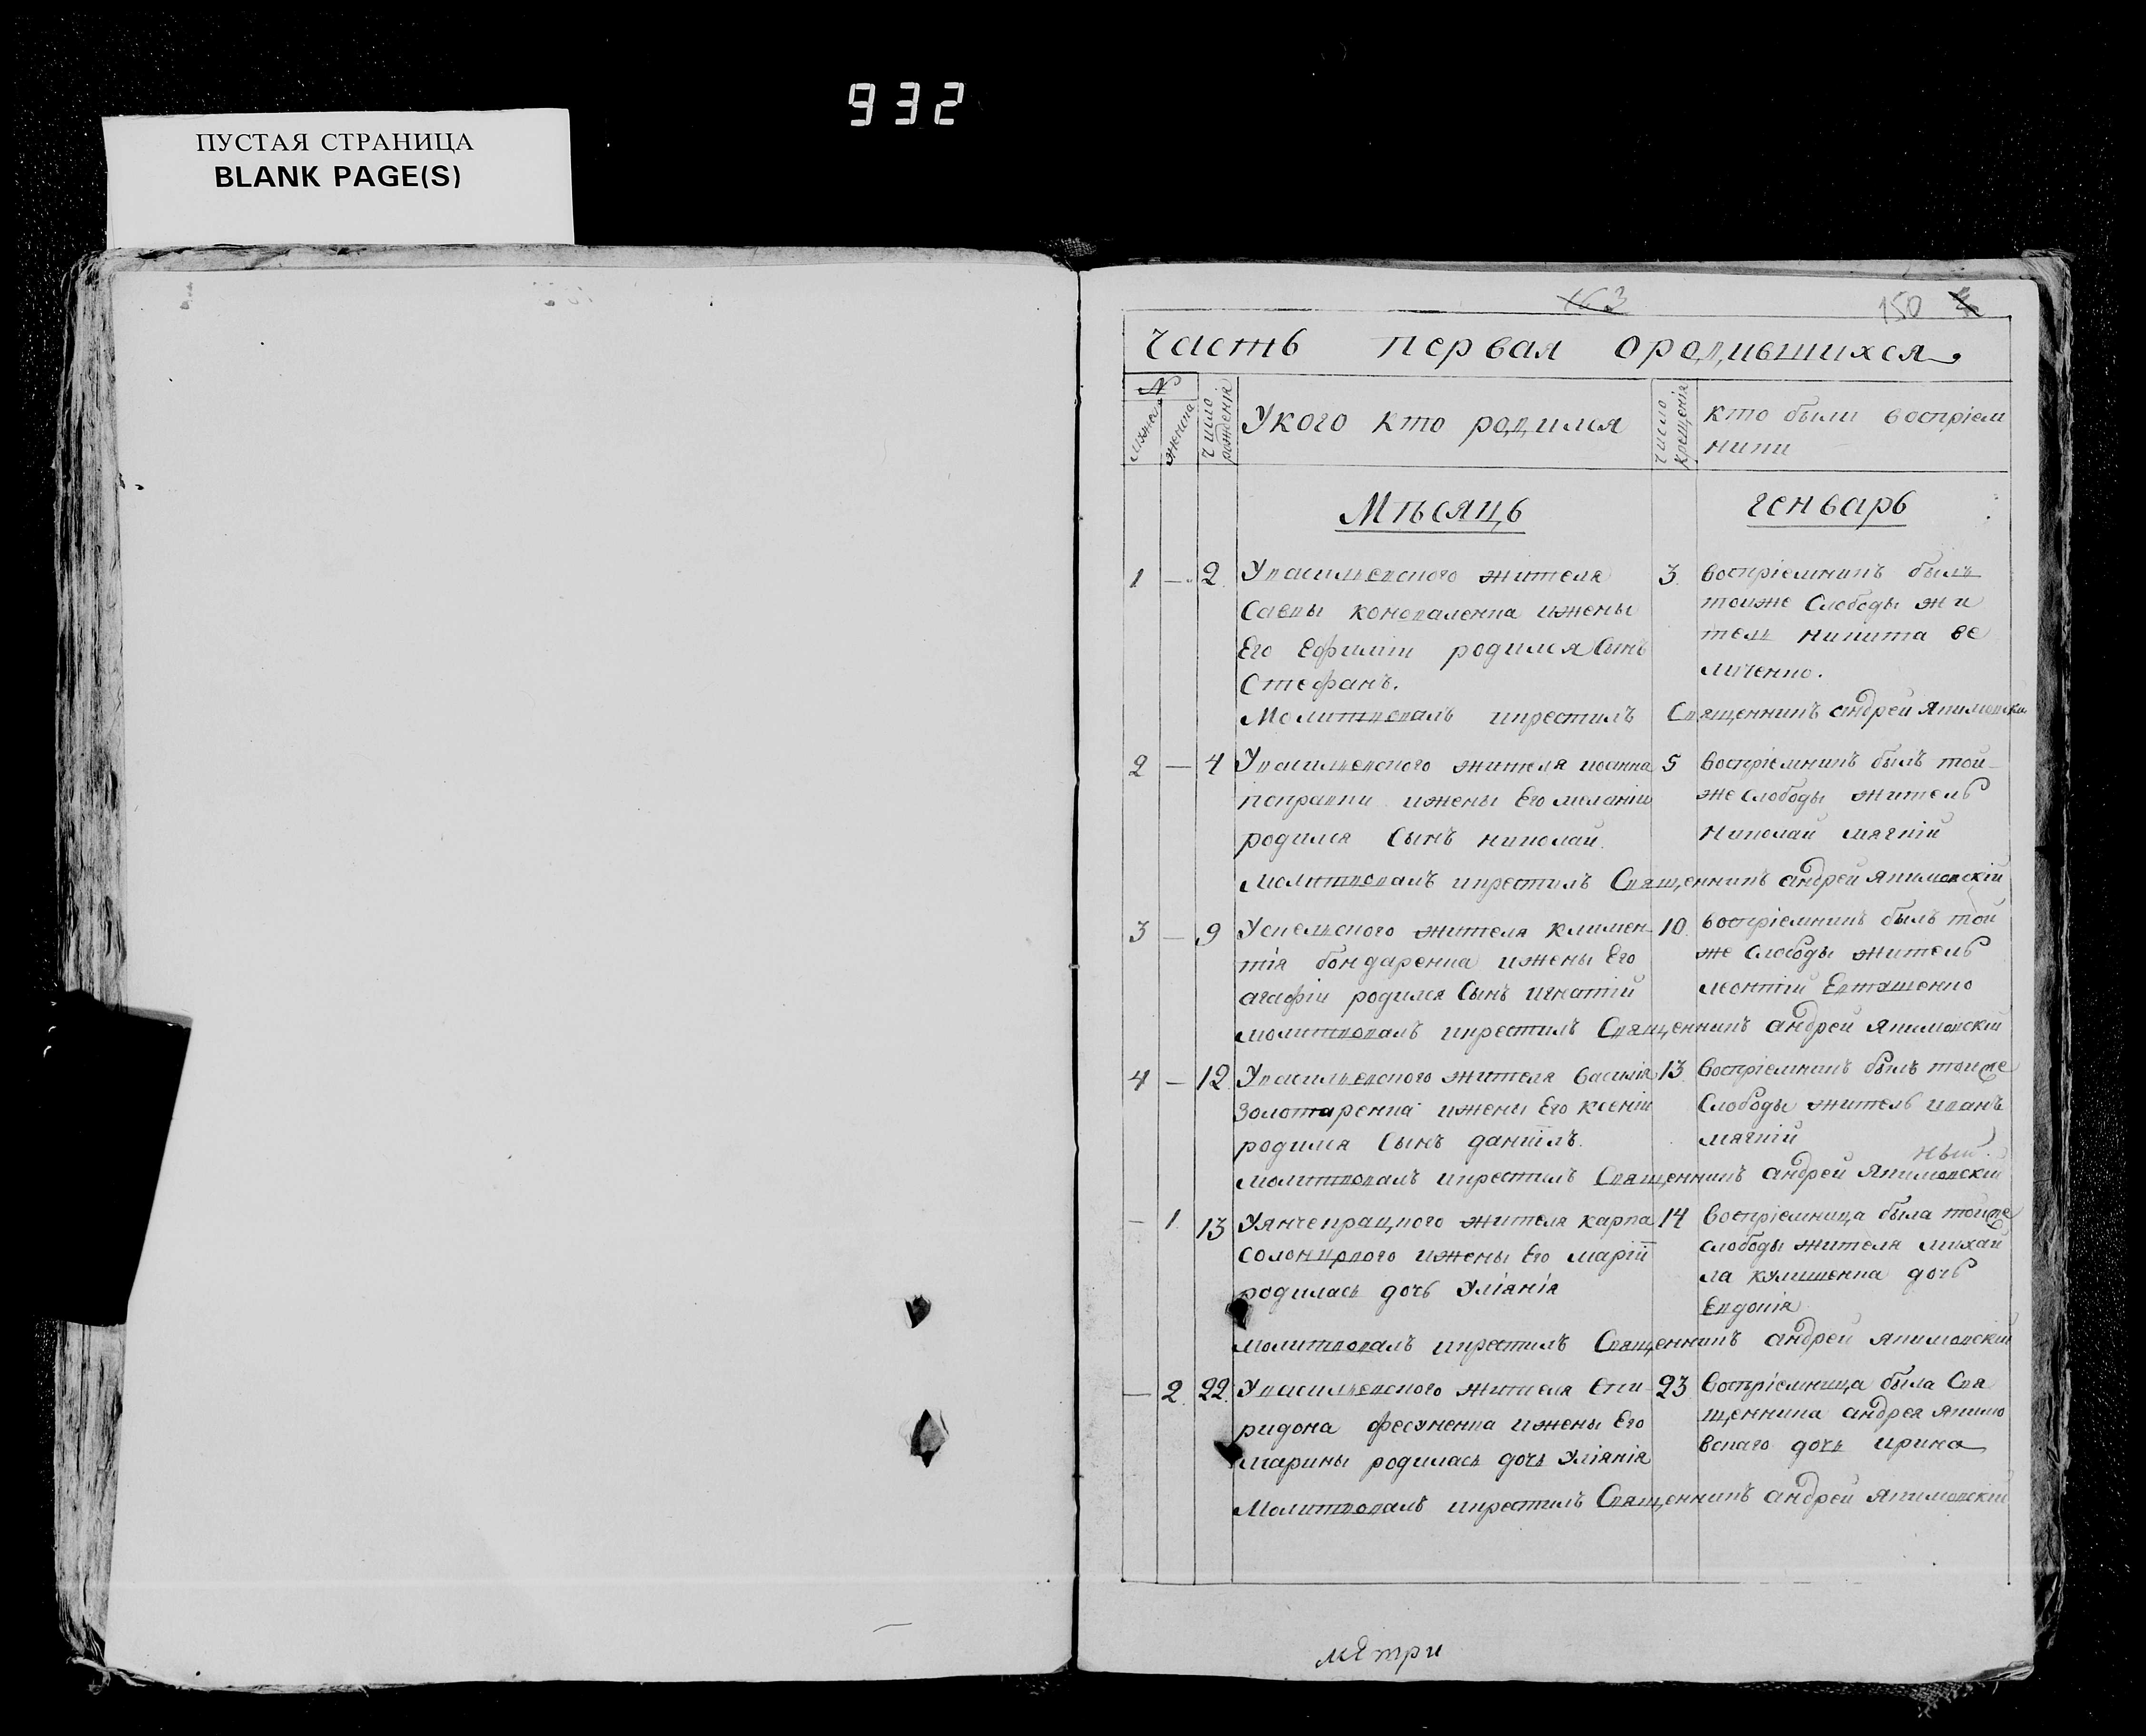 932
ПУСТАЯ СТРАНИЦА
BLANK PAGE(S)
163
150
Часть первая ородившихся
№
мужеска
женска
Число рожденія
Укого кто родился
Число крещенія
кто были воспріем
ники
Мѣсяць генварь
1 — 2 Увасильевского жителя
Саввы коноваленка ижены
Его Ефиміи родился Сынъ
Стефанъ.
3 воспріемникъ былъ
тоиже Слободы жи
тель никита ве
личенко.
Молитвовалъ икрестилъ Священникъ андрей якимовски
2 — 4 Увасильевского жителя иоанна
поправки ижены Его меланіи
родился Сынъ николаи.
5 воспріемникъ былъ той
же слободы житель
николаи мягкій
молитвовалъ икрестилъ Священникъ андрей якимовскій
3 — 9 Усиельского жителя климен
тія бондаренка ижены Его
агафіи родился Сынъ игнатій
10 воспріемникъ былъ той
же слободы житель
леонтій Евтушенко
молитвовалъ икрестилъ Священникъ андрей якимовскій
4 — 12 Увасильевского жителя василія
золотаренка ижени Его ксеніи
родился Сынъ даніилъ.
13 воспріемникъ былъ тоиже
Слободы житель иванъ
мягкій
молитвовалъ икрестилъ Священникъ андрей якимовскій
— 1 13 Уянчекрацкого жителя карпа
солонцового ижены Его маріи
родилась дочь Уліянія
14 воспріемница была тойже
слободы жителя михаи
ла кулишенка дочь
Евдокія
молитвовалъ икрестилъ Священникъ андрей якимовскій
— 2 22 Увасильевского жителя Спи
ридона фесуненка ижены Его
марины родилась дочь Уліянія
23 воспріемница была Свя
щенника андрея якимо
вскаго дочь ирина
Молитвовалъ икрестилъ Священникъ андрей якимовскій
метри